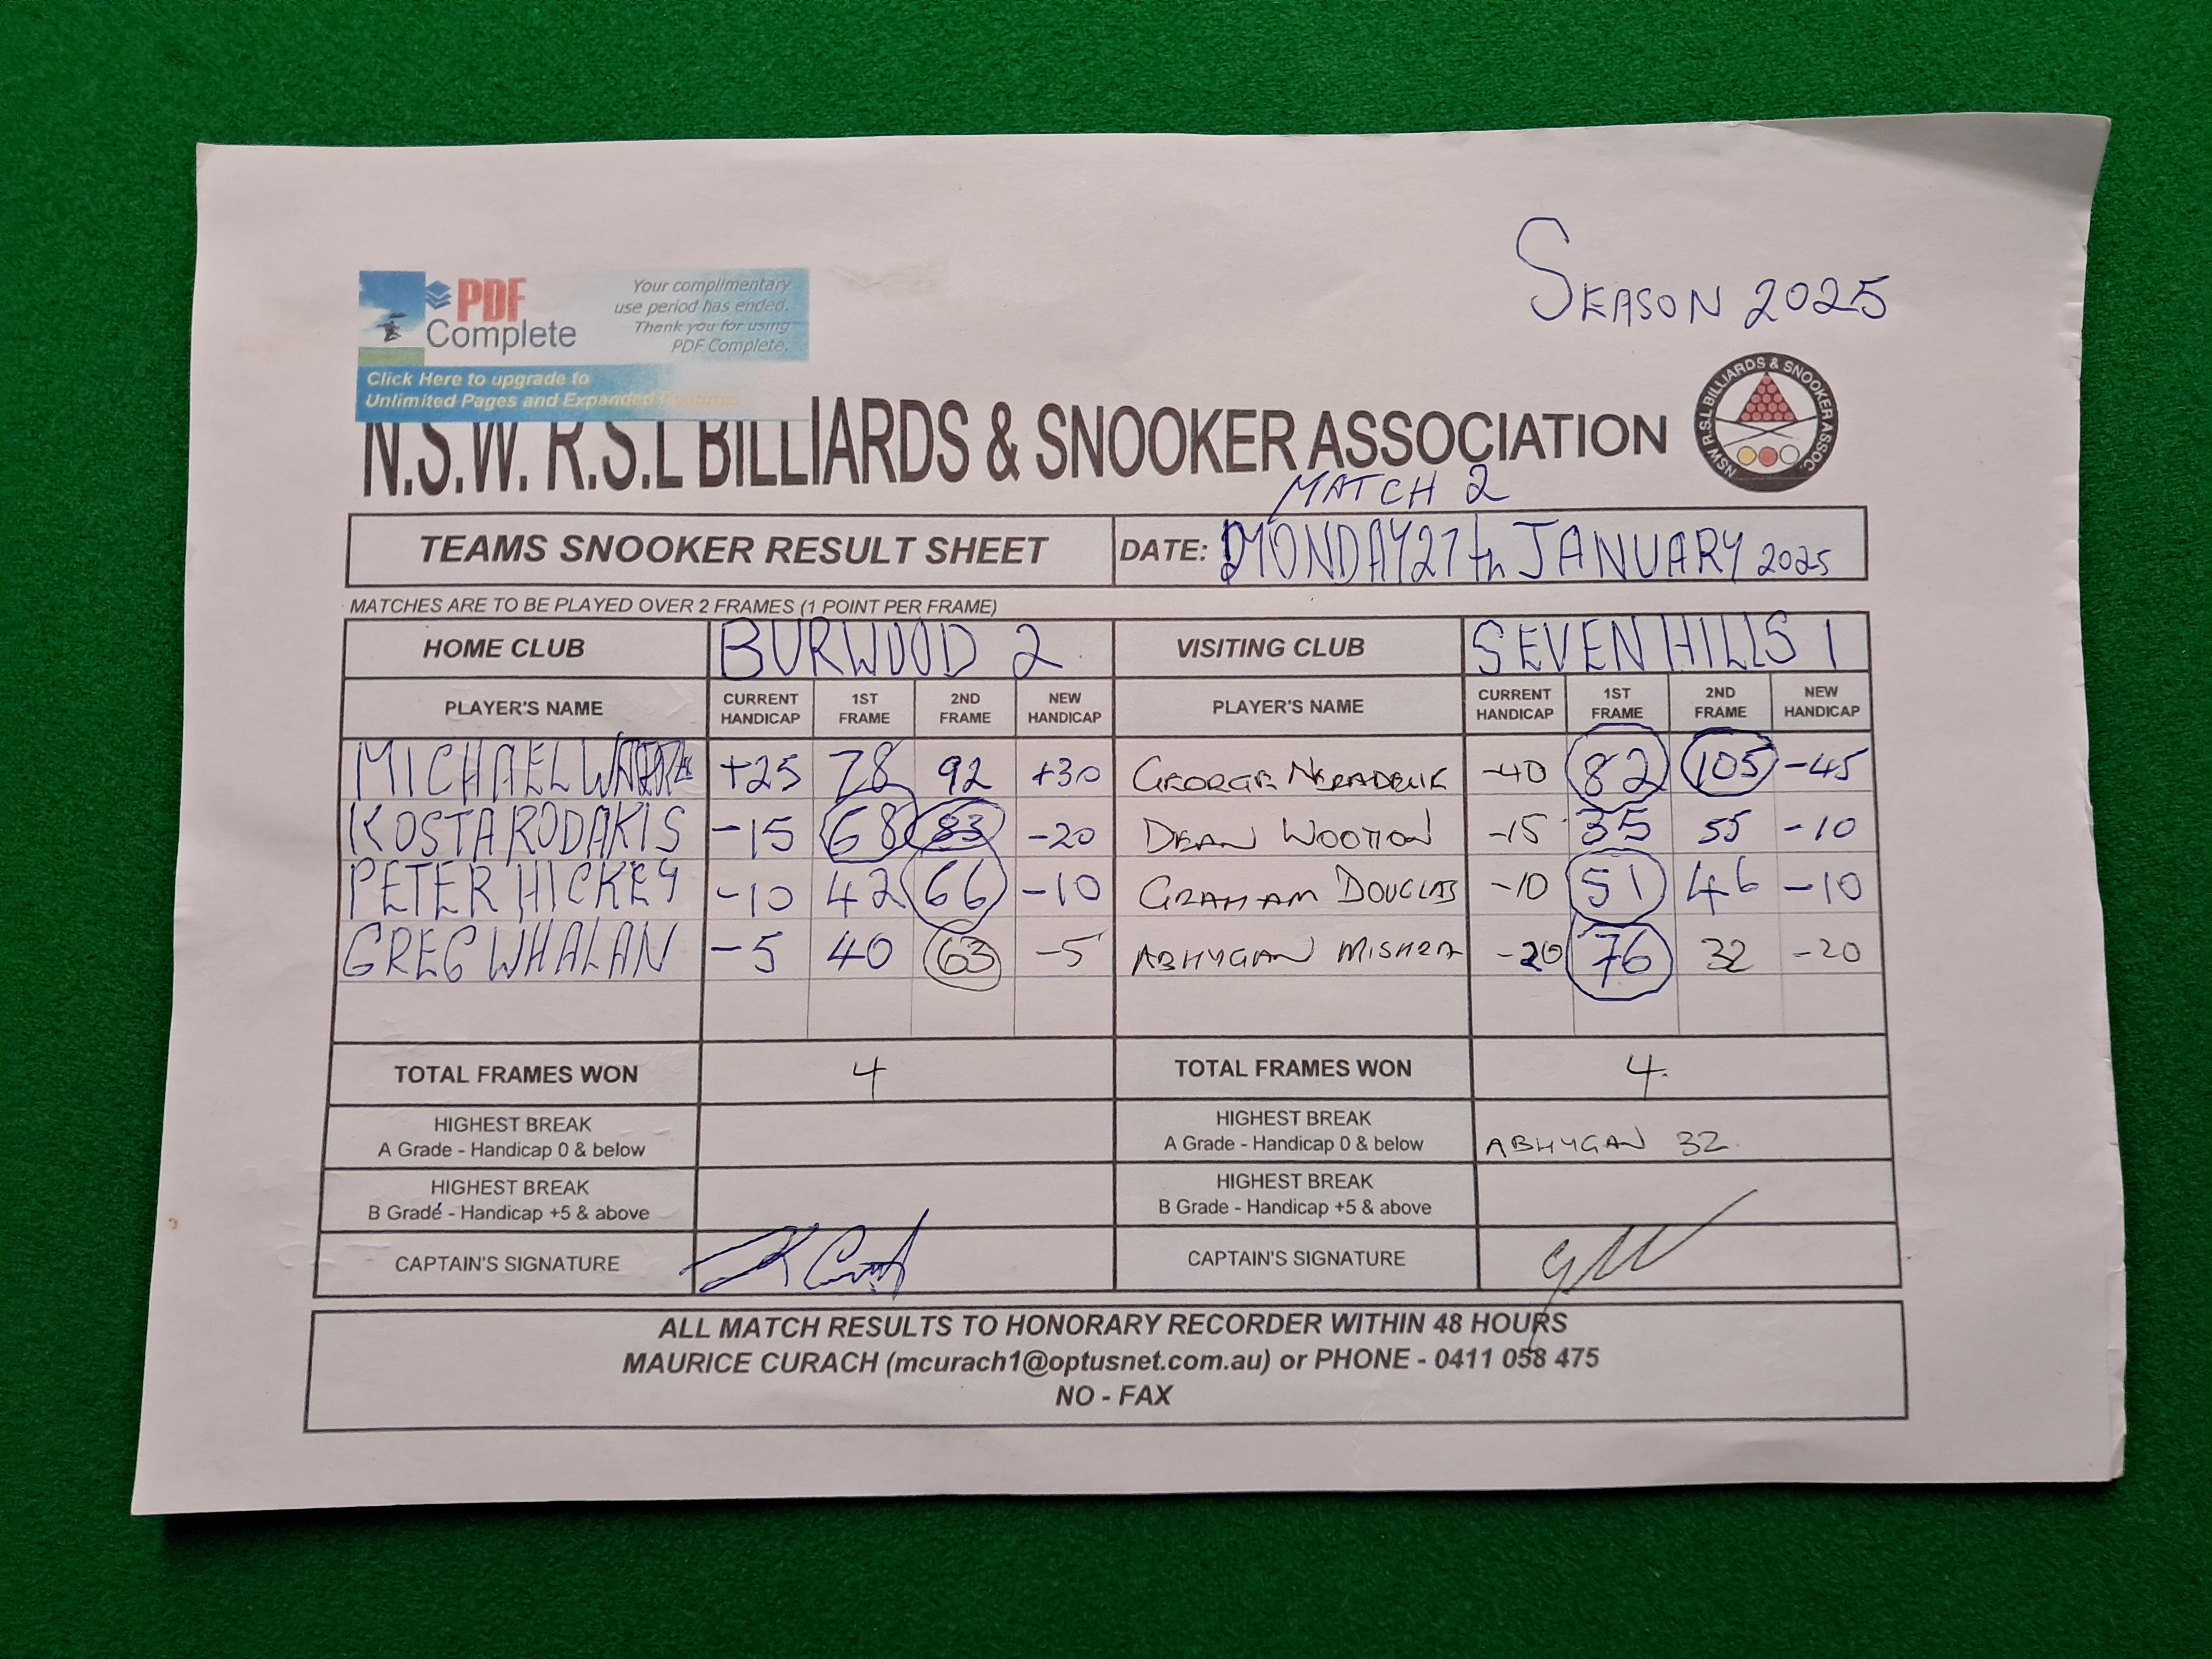 SEASON 2025
PDF
Complete
Your complimentary
use period has ended.
Thank you for using
PDF Complete.
Click Here to upgrade to
Unlimited Pages and Expanded Features
N.S.W. R.S.L BILLIARDS & SNOOKER ASSOCIATION
NSW R.S.L BILLIARDS & SNOOKER ASSOC.
MATCH 2
TEAMS SNOOKER RESULT SHEET DATE: MONDAY 27th JANUARY 2025
MATCHES ARE TO BE PLAYED OVER 2 FRAMES (1 POINT PER FRAME)
HOME CLUB BURWOOD 2 VISITING CLUB SEVEN HILLS 1
PLAYER'S NAME CURRENT HANDICAP 1ST FRAME 2ND FRAME NEW HANDICAP PLAYER'S NAME CURRENT HANDICAP 1ST FRAME 2ND FRAME NEW HANDICAP
MICHAEL +25 78 92 +30 GEORGE -40 82 105 -45
KOSTA RODAKIS -15 68 83 -20 DEAN WOOTTON -15 35 55 -10
PETER HICKEY -10 42 66 -10 GRAHAM DOUGLAS -10 51 46 -10
GREG WHALAN -5 40 63 -5 ABHYGAN MISHRA -20 76 32 -20
TOTAL FRAMES WON 4 TOTAL FRAMES WON 4.
HIGHEST BREAK
A Grade - Handicap 0 & below
HIGHEST BREAK
A Grade - Handicap 0 & below ABHYGAN 32
HIGHEST BREAK
B Grade - Handicap +5 & above
HIGHEST BREAK
B Grade - Handicap +5 & above
CAPTAIN'S SIGNATURE CAPTAIN'S SIGNATURE
ALL MATCH RESULTS TO HONORARY RECORDER WITHIN 48 HOURS
MAURICE CURACH (mcurach1@optusnet.com.au) or PHONE - 0411 058 475
NO - FAX